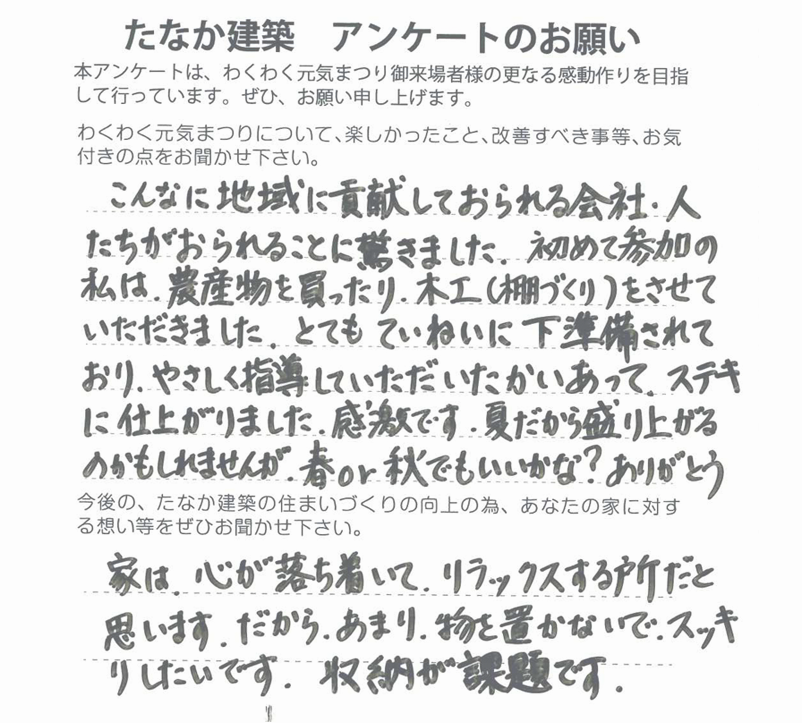 たなか建築　アンケートのお願い
本アンケートは、わくわく元気まつり御来場者様の更なる感動作りを目指
して行っています。ぜひ、お願い申し上げます。
わくわく元気まつりについて、楽しかったこと、改善すべき事等、お気
付きの点をお聞かせ下さい。
こんなに地域に貢献しておられる会社・人
たちがおられることに驚きました。初めて参加の
私は、農産物を買ったり、木工(棚づくり)をさせて
いただきました。とてもていねいに下準備されて
おり、やさしく指導していただいたかいあって、ステキ
に仕上がりました。感激です。夏だから盛り上がる
のかもしれませんが、春or秋でもいいかな?ありがとう
今後の、たなか建築の住まいづくりの向上の為、あなたの家に対す
る想い等をぜひお聞かせ下さい。
家は、心が落ち着いて、リラックスする所だと
思います。だから、あまり、物を置かないで、スッキ
リしたいです。収納が課題です。